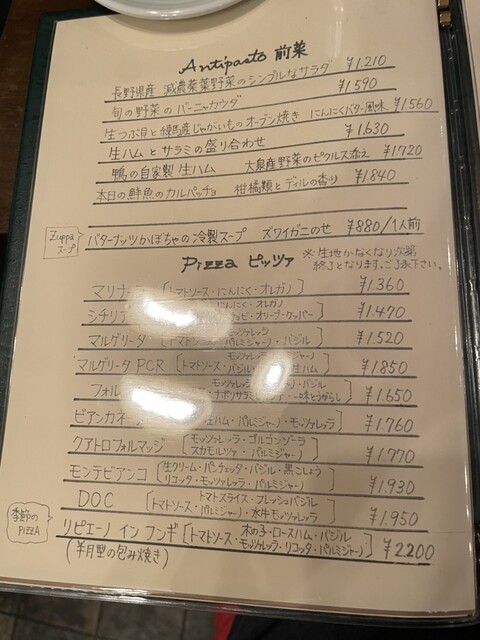 Antipasto 前菜
長野県産 減農薬葉野菜のシンプルなサラダ ¥1.210
旬の野菜のバーニャカウダ ¥1.590
生つぶ貝と練馬産じゃがいものオーブン焼き にんにくバター風味 ¥1.560
生ハムとサラミの盛り合わせ ¥1.630
鴨の自家製生ハム 大泉産野菜のピクルス添え ¥1.720
本日の鮮魚のカルパッチョ 柑橘類とディルの香り ¥1.840
Zuppa スープ
バターナッツかぼちゃの冷製スープ ズワイガニのせ ¥880/1人前
Pizza ピッツァ ※生地がなくなり次第
終了となります。ご了承下さい。
マリナ [トマトソース・にんにく・オレガノ] ¥1.360
シチリ にんにく・オレガノ
ョビ・オリーブ・ケッパー] ¥1.470
マルゲリータ モッツァレッラ
[トマトソース・パルミジャーノ・バジル] ¥1.520
マルゲリータ PCR モッツァレッラ・パルミジャーノ
[トマトソース・バジル 生ハム] ¥1.850
フォル モッツァレッラ・バジル
ナポリサラミ 一味とうがらし] ¥1.650
ビアンカネ 生ハム・パルミジャーノ・モッツァレッラ] ¥1.760
クアトロフォルマッジ [モッツァレッラ・ゴルゴンゾーラ
スカモルツァ・パルミジャーノ] ¥1.770
モンテビアンコ [生クリーム・パンチェッタ・バジル・黒こしょう
リコッタ・モッツァレッラ・パルミジャーノ] ¥1.930
DOC [トマトスライス・フレッシュバジル
トマトソース・パルミジャーノ・水牛モッツァレッラ] ¥1.950
季節の PIZZA
リピエーノ イン フンギ [木の子・ロースハム・バジル
トマトソース・モッツァレッラ・リコッタ・パルミジャーノ] ¥2.200
(半月型の包み焼き)